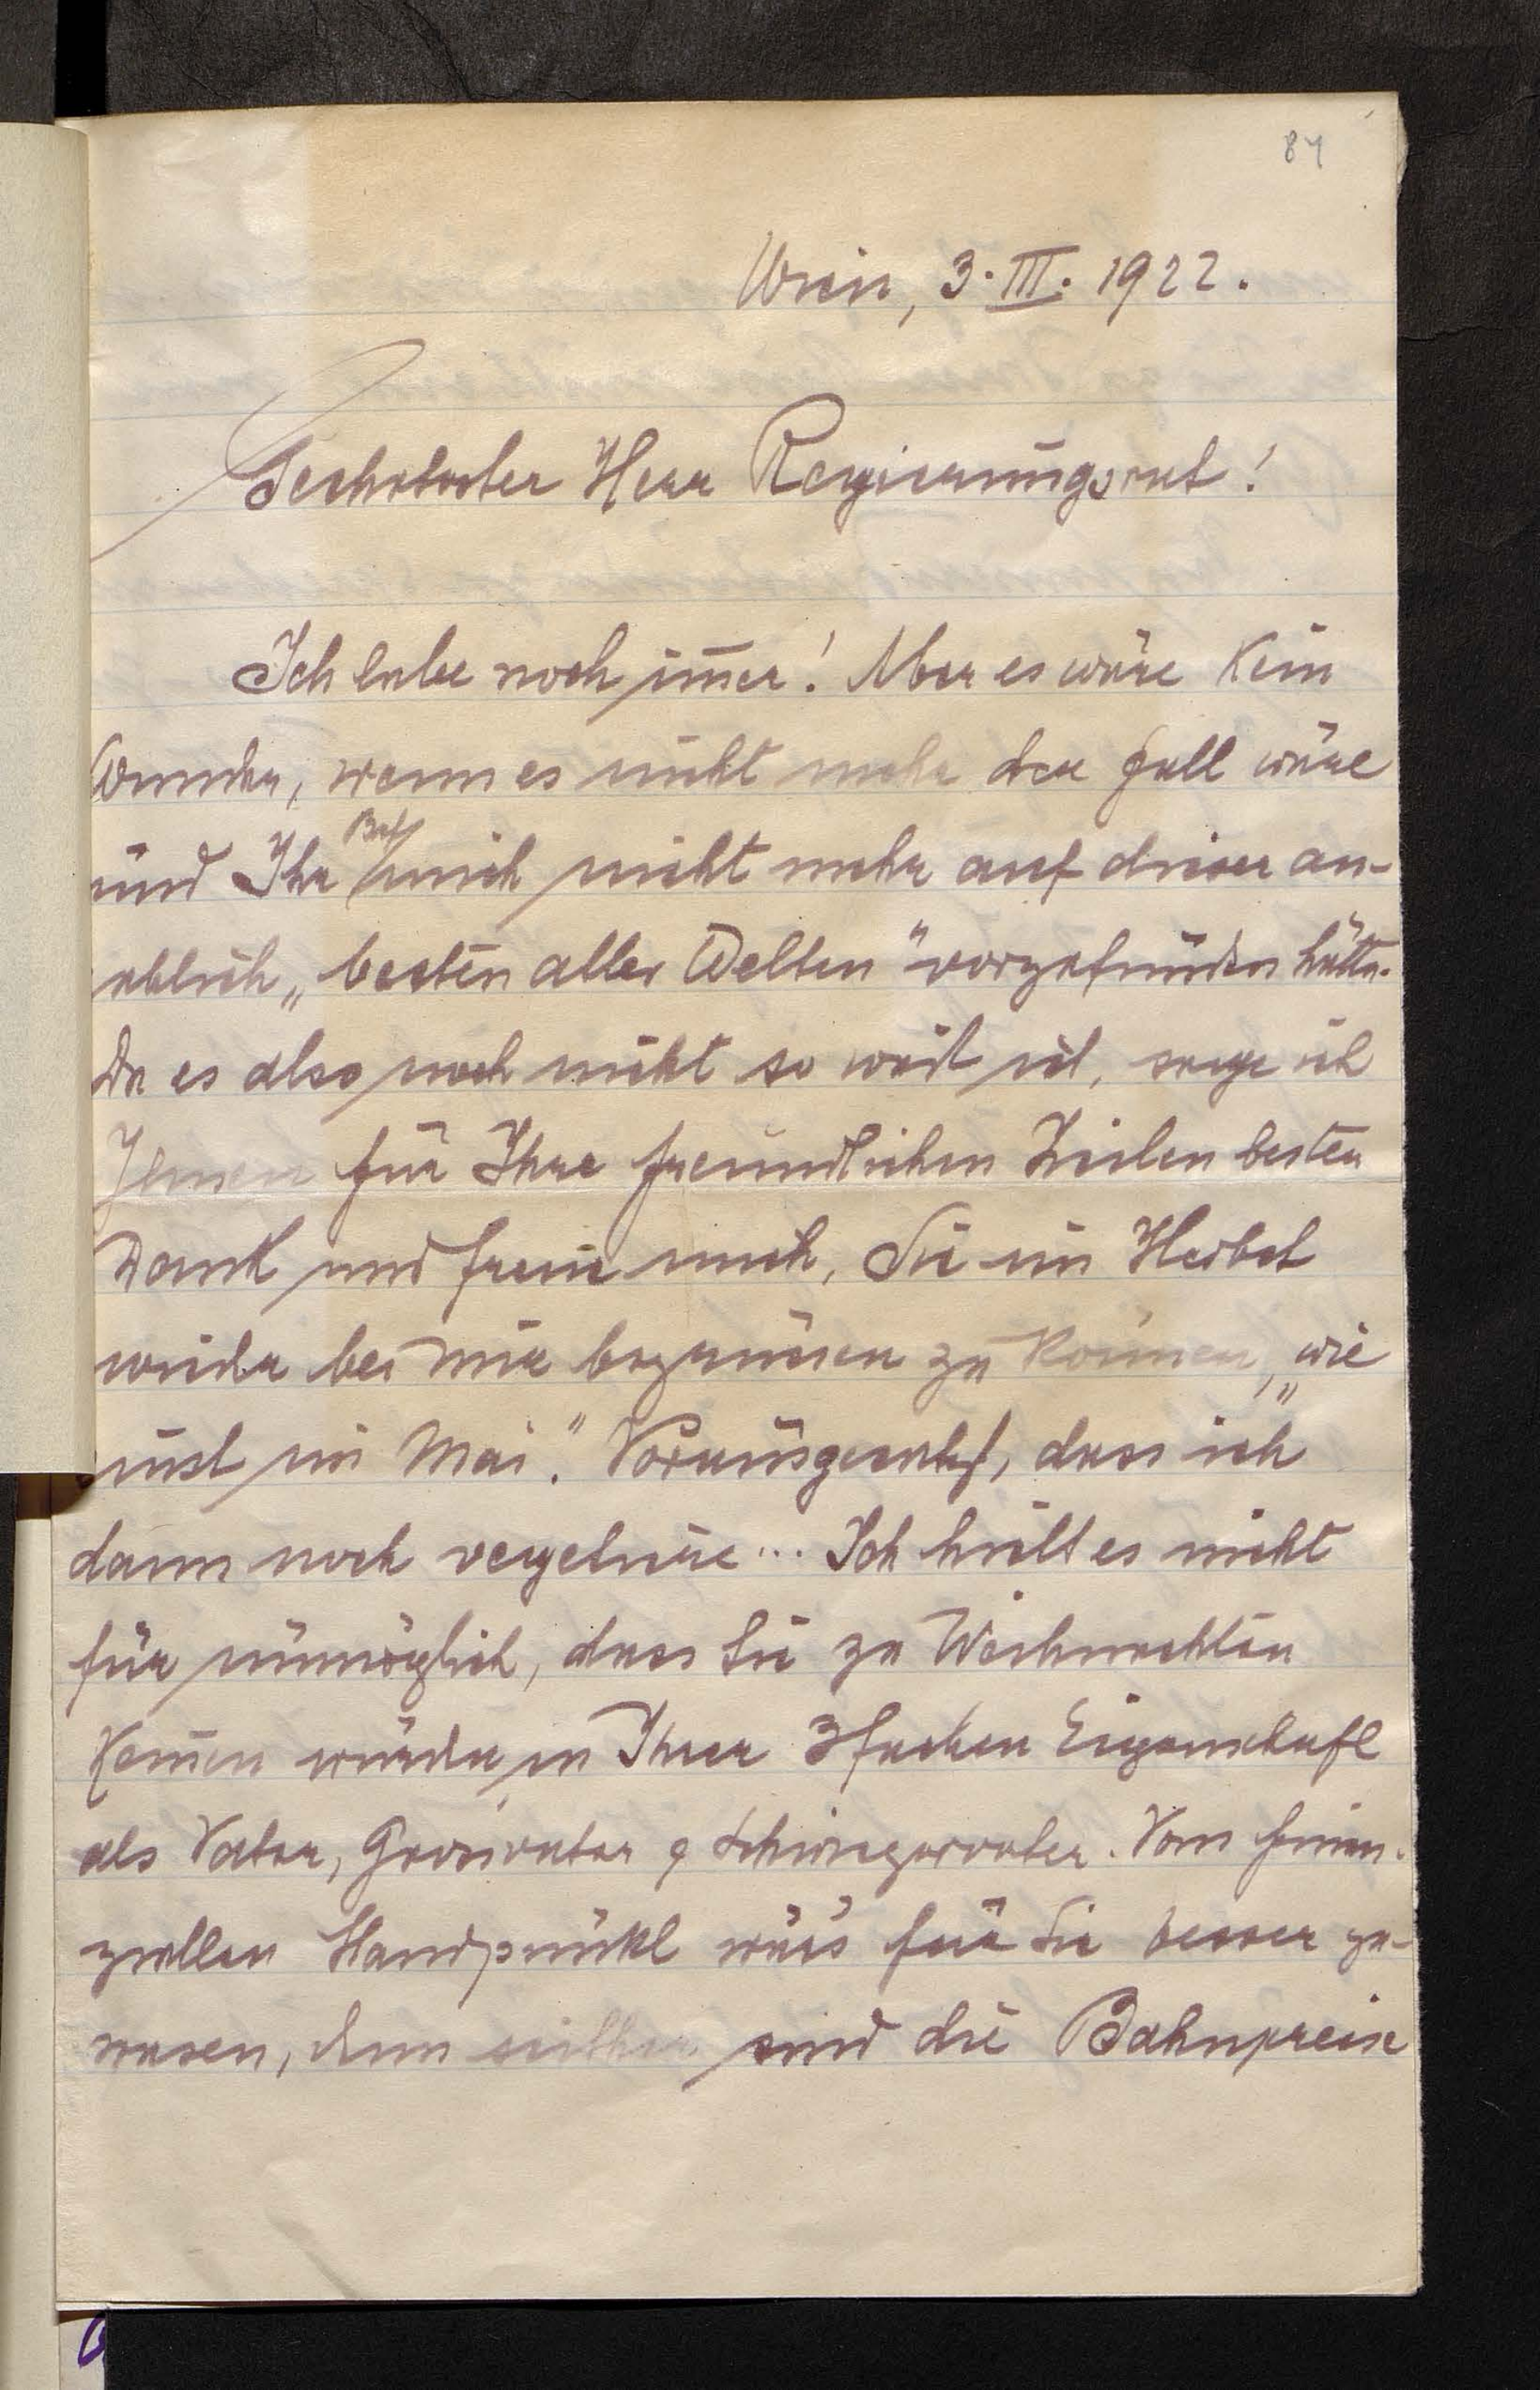 84
Wien, 3. III. 1922.
Geehrtester Herr Regierungsrat!
Ich lebe noch im̅er! Aber es wäre kein
Wunder, wenn es nicht mehr der Fall wäre
und Ihr Brief mich nicht mehr auf dieser an-
geblich „besten aller Welten" vorgefunden hätte.
Da es also noch nicht so weit ist, sage ich
Ihnen für Ihre freundlichen Zeilen besten
Dank und freue mich, Sie im Herbst
wieder bei mir begrüssen zu können, „wie
einst im Mai." Vorausgesetzt, dass ich
dann noch vegetiere... Ich hielt es nicht
für unmöglich, dass Sie zu Weihnachten
kom̅en würden in Ihrer 3fachen Eigenschaft
als Vater, Grossvater & Schwiegervater. Vom finan-
ziellen Standpunkt wär's für Sie besser ge-
wesen, denn seither sind die Bahnpreise